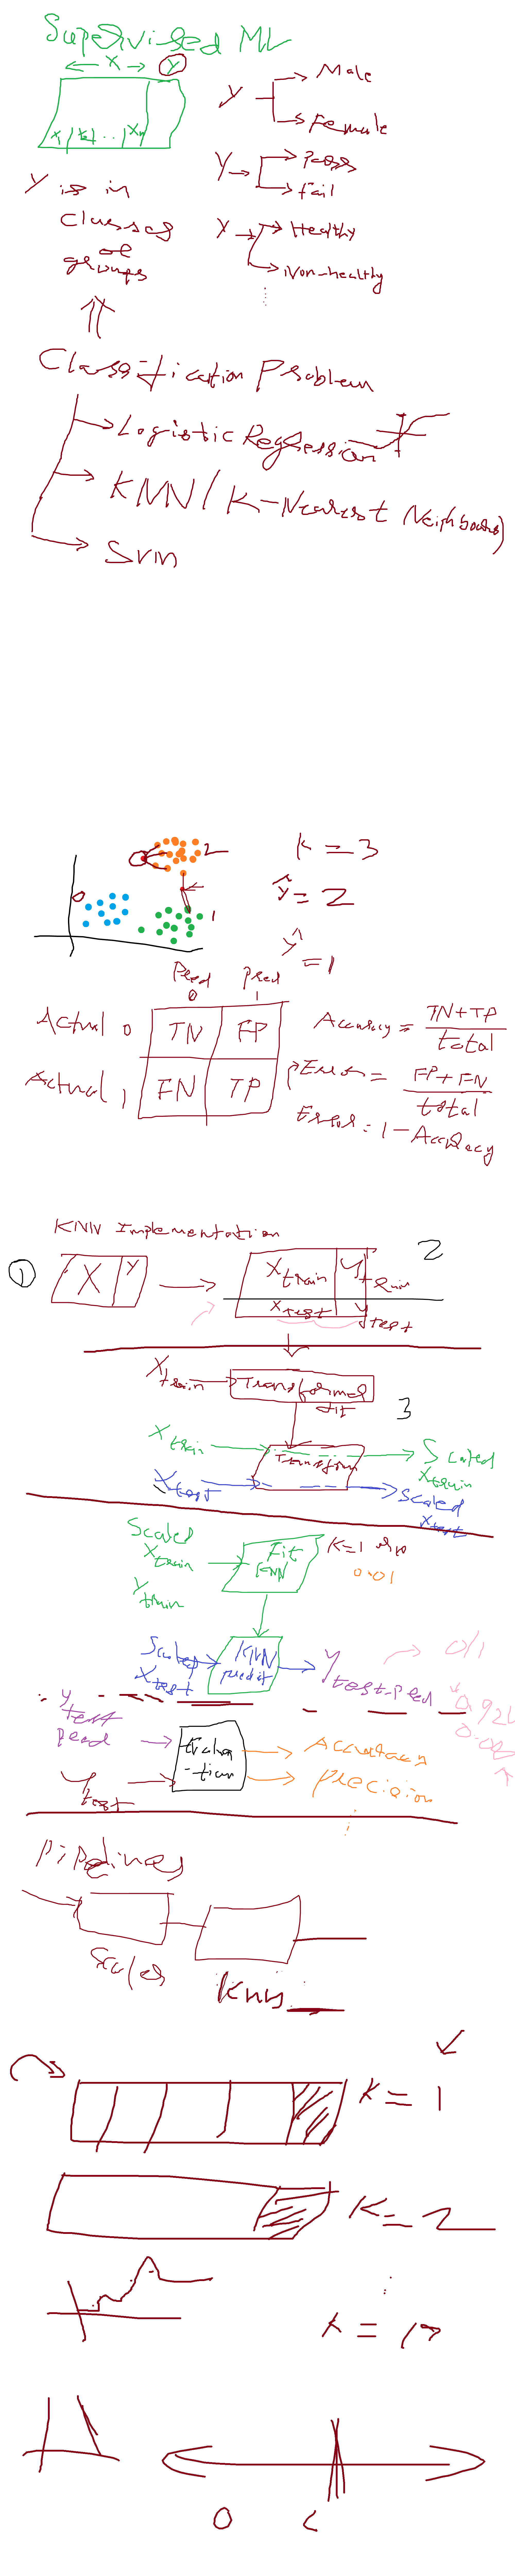 Supervised ML
X Y
x1 x2 .. xn
Y Male
Female
Y Pass
Fail
Y Healthy
Non-healthy
Y is in
classes
or
groups
Classification Problem
Logistic Regression
KNN (K-Nearest Neighbours)
SVM
2
0
1
K = 3
ŷ = 2
ŷ = 1
Pred 0 Pred 1
Actual 0 TN FP
Actual 1 FN TP
Accuracy = TN+TP / total
Error = FP+FN / total
Error = 1 - Accuracy
KNN Implementation
1 X Y
Xtrain Ytrain 2
Xtest Ytest
Xtrain Transformed
fit
3
Xtrain Transform Scaled
Xtrain
Xtest Scaled
Xtest
Scaled
Xtrain
Ytrain
Fit
KNN
K=1
0.01
Scaled
Xtest
KNN
predict
Ytest-pred
0/1
Y
test
pred
Ytest
Evalua
-tion
Accuracy
Precision
Pipelines
Scaler
KNN
K = 1
K = 2
K = 10
0